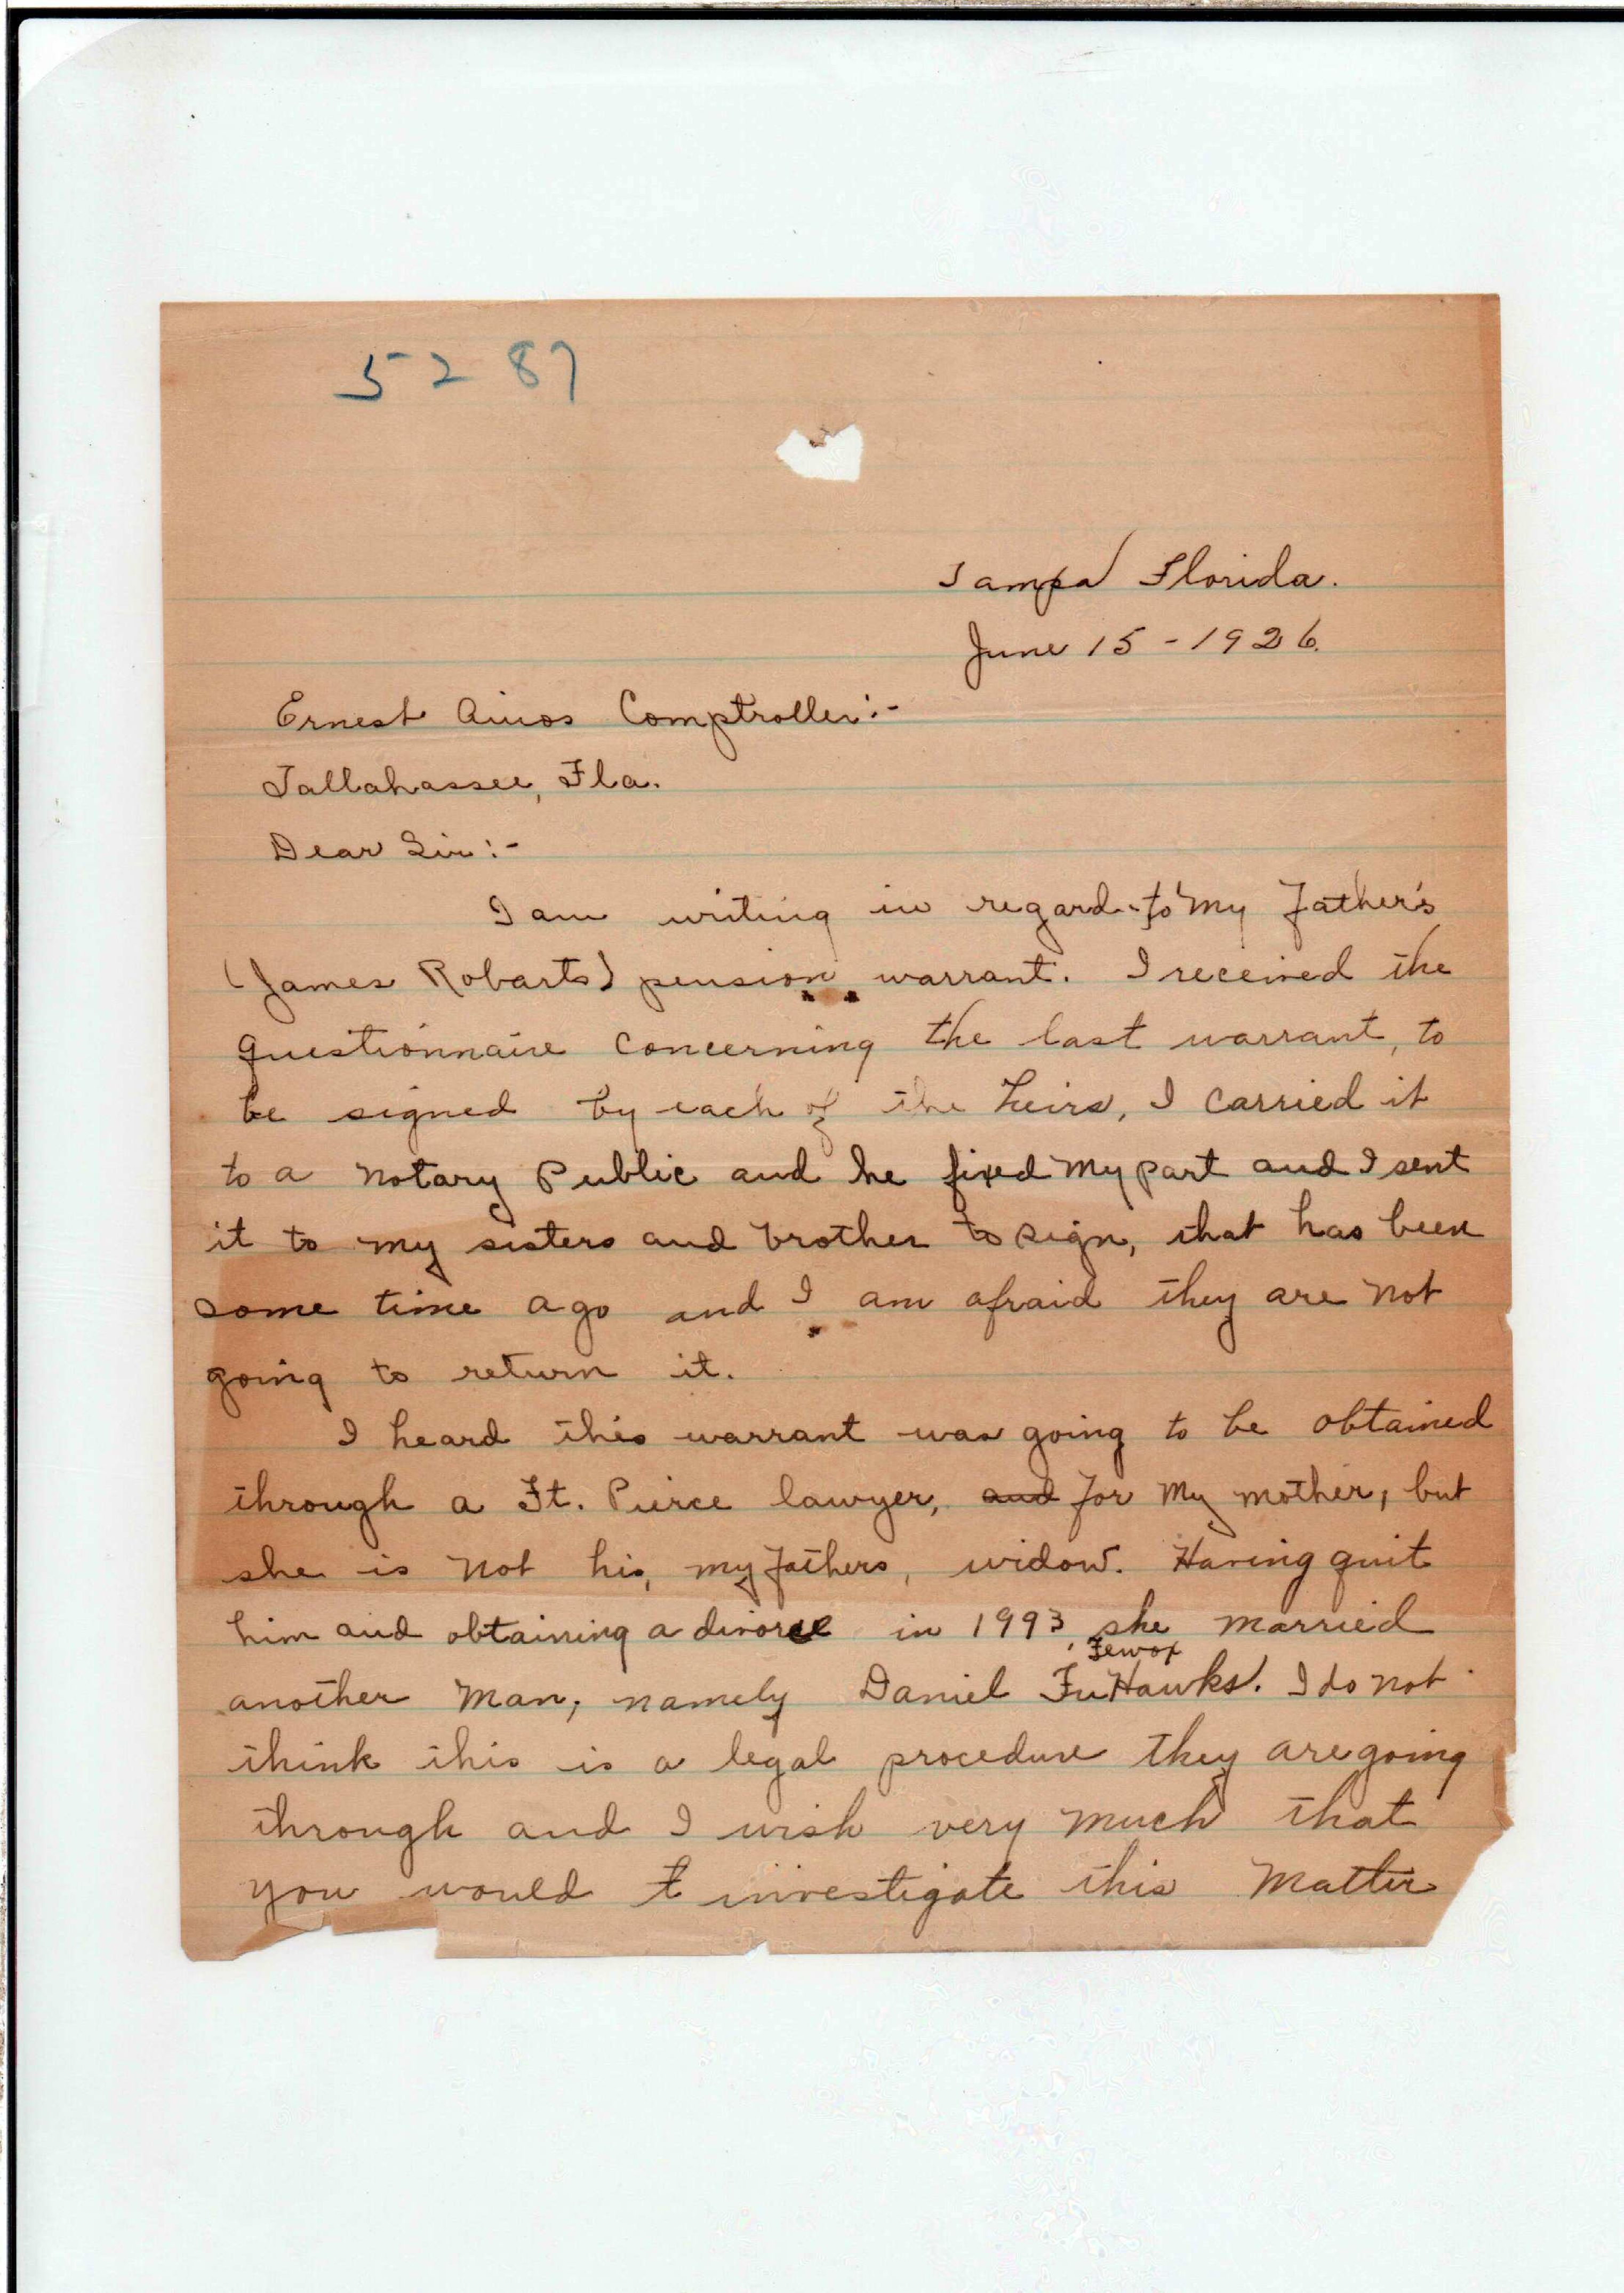 5287
Tampa Florida.
June 15 - 1926.
Ernest Amos Comptroller:-
Tallahassee, Fla.
Dear Sir:-
I am writing in regard to my Father's
(James Robarts) pension warrant. I received the
questionnaire concerning the last warrant, to
be signed by each of the heirs, I carried it
to a notary Public and he fixed my part and I sent
it to my sisters and brother to sign, that has been
some time ago and I am afraid they are not
going to return it.
I heard this warrant was going to be obtained
through a Ft. Pierce lawyer, and for my mother, but
she is not his, my fathers, widow. Having quit
him and obtaining a divorce in 1993, she married
Fewox
another man, namely Daniel FuHawks. I do not
think this is a legal procedure they are going
through and I wish very much that
you would t investigate this matter